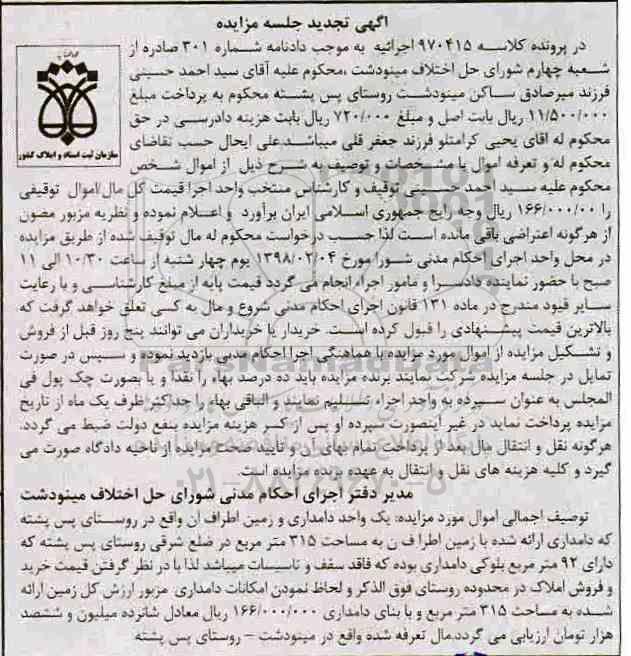 آگهی تجدید جلسه مزایده
در پرونده کلاسه ۹۷۰۴۱۵ اجرائیه به موجب دادنامه شماره ۳۰۱ صادره از
شعبه چهارم شورای حل اختلاف مینودشت ،محکوم علیه آقای سید احمد حسینی
فرزند میرصادق ساکن مینودشت روستای پس پشته محکوم به پرداخت مبلغ
۱۱/۵۰۰/۰۰۰ ریال بابت اصل و مبلغ ۷۲۰/۰۰۰ ریال بابت هزینه دادرسی در حق
محکوم له اقای یحیی کرامتلو فرزند جعفر قلی میباشد.علی ایحال حسب تقاضای
محکوم له و تعرفه اموال با مشخصات و توصیف به شرح ذیل از اموال شخص
محکوم علیه سید احمد حسینی توقیف و کارشناس منتخب واحد اجرا قیمت کل مال/اموال توقیفی
را ۱۶۶/۰۰۰/۰۰ ریال وجه رایج جمهوری اسلامی ایران برآورد و اعلام نموده و نظریه مزبور مصون
از هرگونه اعتراضی باقی مانده است لذا حسب درخواست محکوم له مال توقیف شده از طریق مزایده
در محل واحد اجرای احکام مدنی شورا مورخ ۱۳۹۸/۰۲/۰۴ یوم چهار شنبه از ساعت ۱۰/۳۰ الی ۱۱
صبح با حضور نماینده دادسرا و مامور اجراء انجام می گردد قیمت پایه از مبلغ کارشناسی و با رعایت
سایر قیود مندرج در ماده ۱۳۱ قانون اجرای احکام مدنی شروع و مال به کسی تعلق خواهد گرفت که
بالاترین قیمت پیشنهادی را قبول کرده است. خریدار یا خریداران می توانند پنج روز قبل از فروش
و تشکیل مزایده از اموال مورد مزایده با هماهنگی اجرا احکام مدنی بازدید نموده و سپس در صورت
تمایل در جلسه مزایده شرکت نمایند برنده مزایده باید ده درصد بهاء را نقدا و یا بصورت چک پول فی
المجلس به عنوان سپرده به واحد اجراء تسلیم نمایند و الباقی بهاء را حداکثر ظرف یک ماه از تاریخ
مزایده پرداخت نماید در غیر اینصورت سپرده او پس از کسر هزینه مزایده بنفع دولت ضبط می گردد.
هرگونه نقل و انتقال مال بعد از پرداخت تمام بهای آن و تایید صحت مزایده از ناحیه دادگاه صورت می
گیرد و کلیه هزینه های نقل و انتقال به عهده برنده مزایده است.
مدیر دفتر اجرای احکام مدنی شورای حل اختلاف مینودشت
توصیف اجمالی اموال مورد مزایده: یک واحد دامداری و زمین اطراف ان واقع در روستای پس پشته
که دامداری ارائه شده با زمین اطرا ف ن به مساحت ۳۱۵ متر مربع در ضلع شرقی روستای پس پشته که
دارای ۹۲ متر مربع بلوکی دامداری بوده که فاقد سقف و تاسیسات میباشد لذا با در نظر گرفتن قیمت خرید
و فروش املاک در محدوده روستای فوق الذکر و لحاظ نمودن امکانات دامداری مزبور ارزش کل زمین ارائه
شده به مساحت ۳۱۵ متر مربع و با بنای دامداری ۱۶۶/۰۰۰/۰۰۰ ریال معادل شانزده میلیون و ششصد
هزار تومان ارزیابی می گردد.مال تعرفه شده واقع در مینودشت – روستای پس پشته
سازمان ثبت اسناد و املاک کشور
ParsNamadData
۰۲۱-۸۸۳۴۹۶۷۰-۵